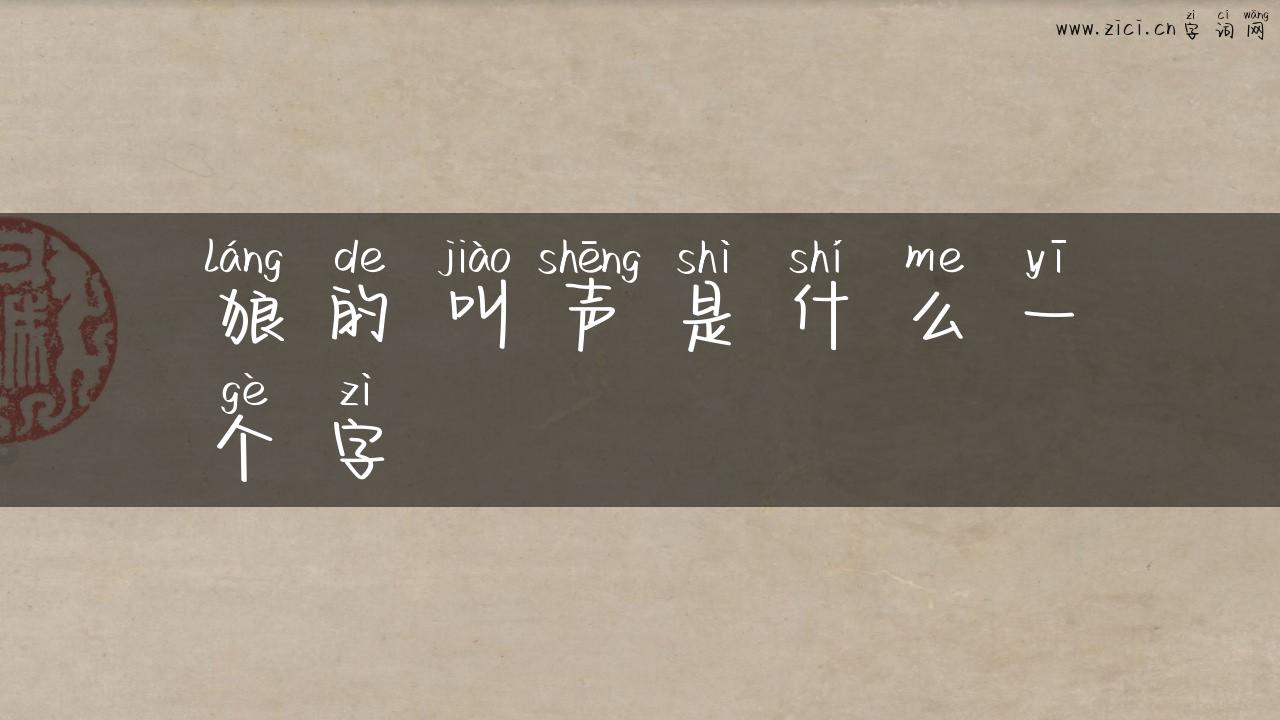 zì cí wǎng
www.zici.cn 字词网
láng de jiào shēng shì shí me yī
狼的叫声是什么一
gè zì
个字